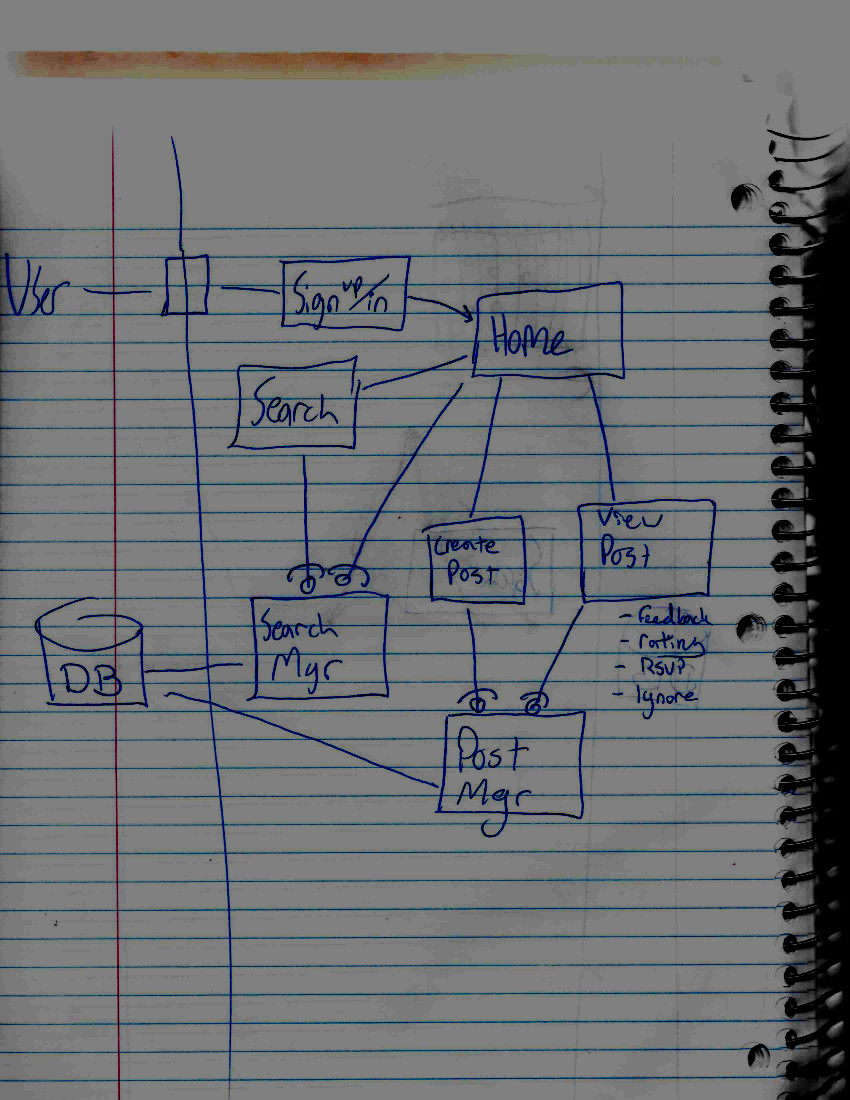 User
Sign up/in
Home
Search
Create
Post
View
Post
- Feedback
- rating
- RSVP
- Ignore
Search
Mgr
DB
Post
Mgr